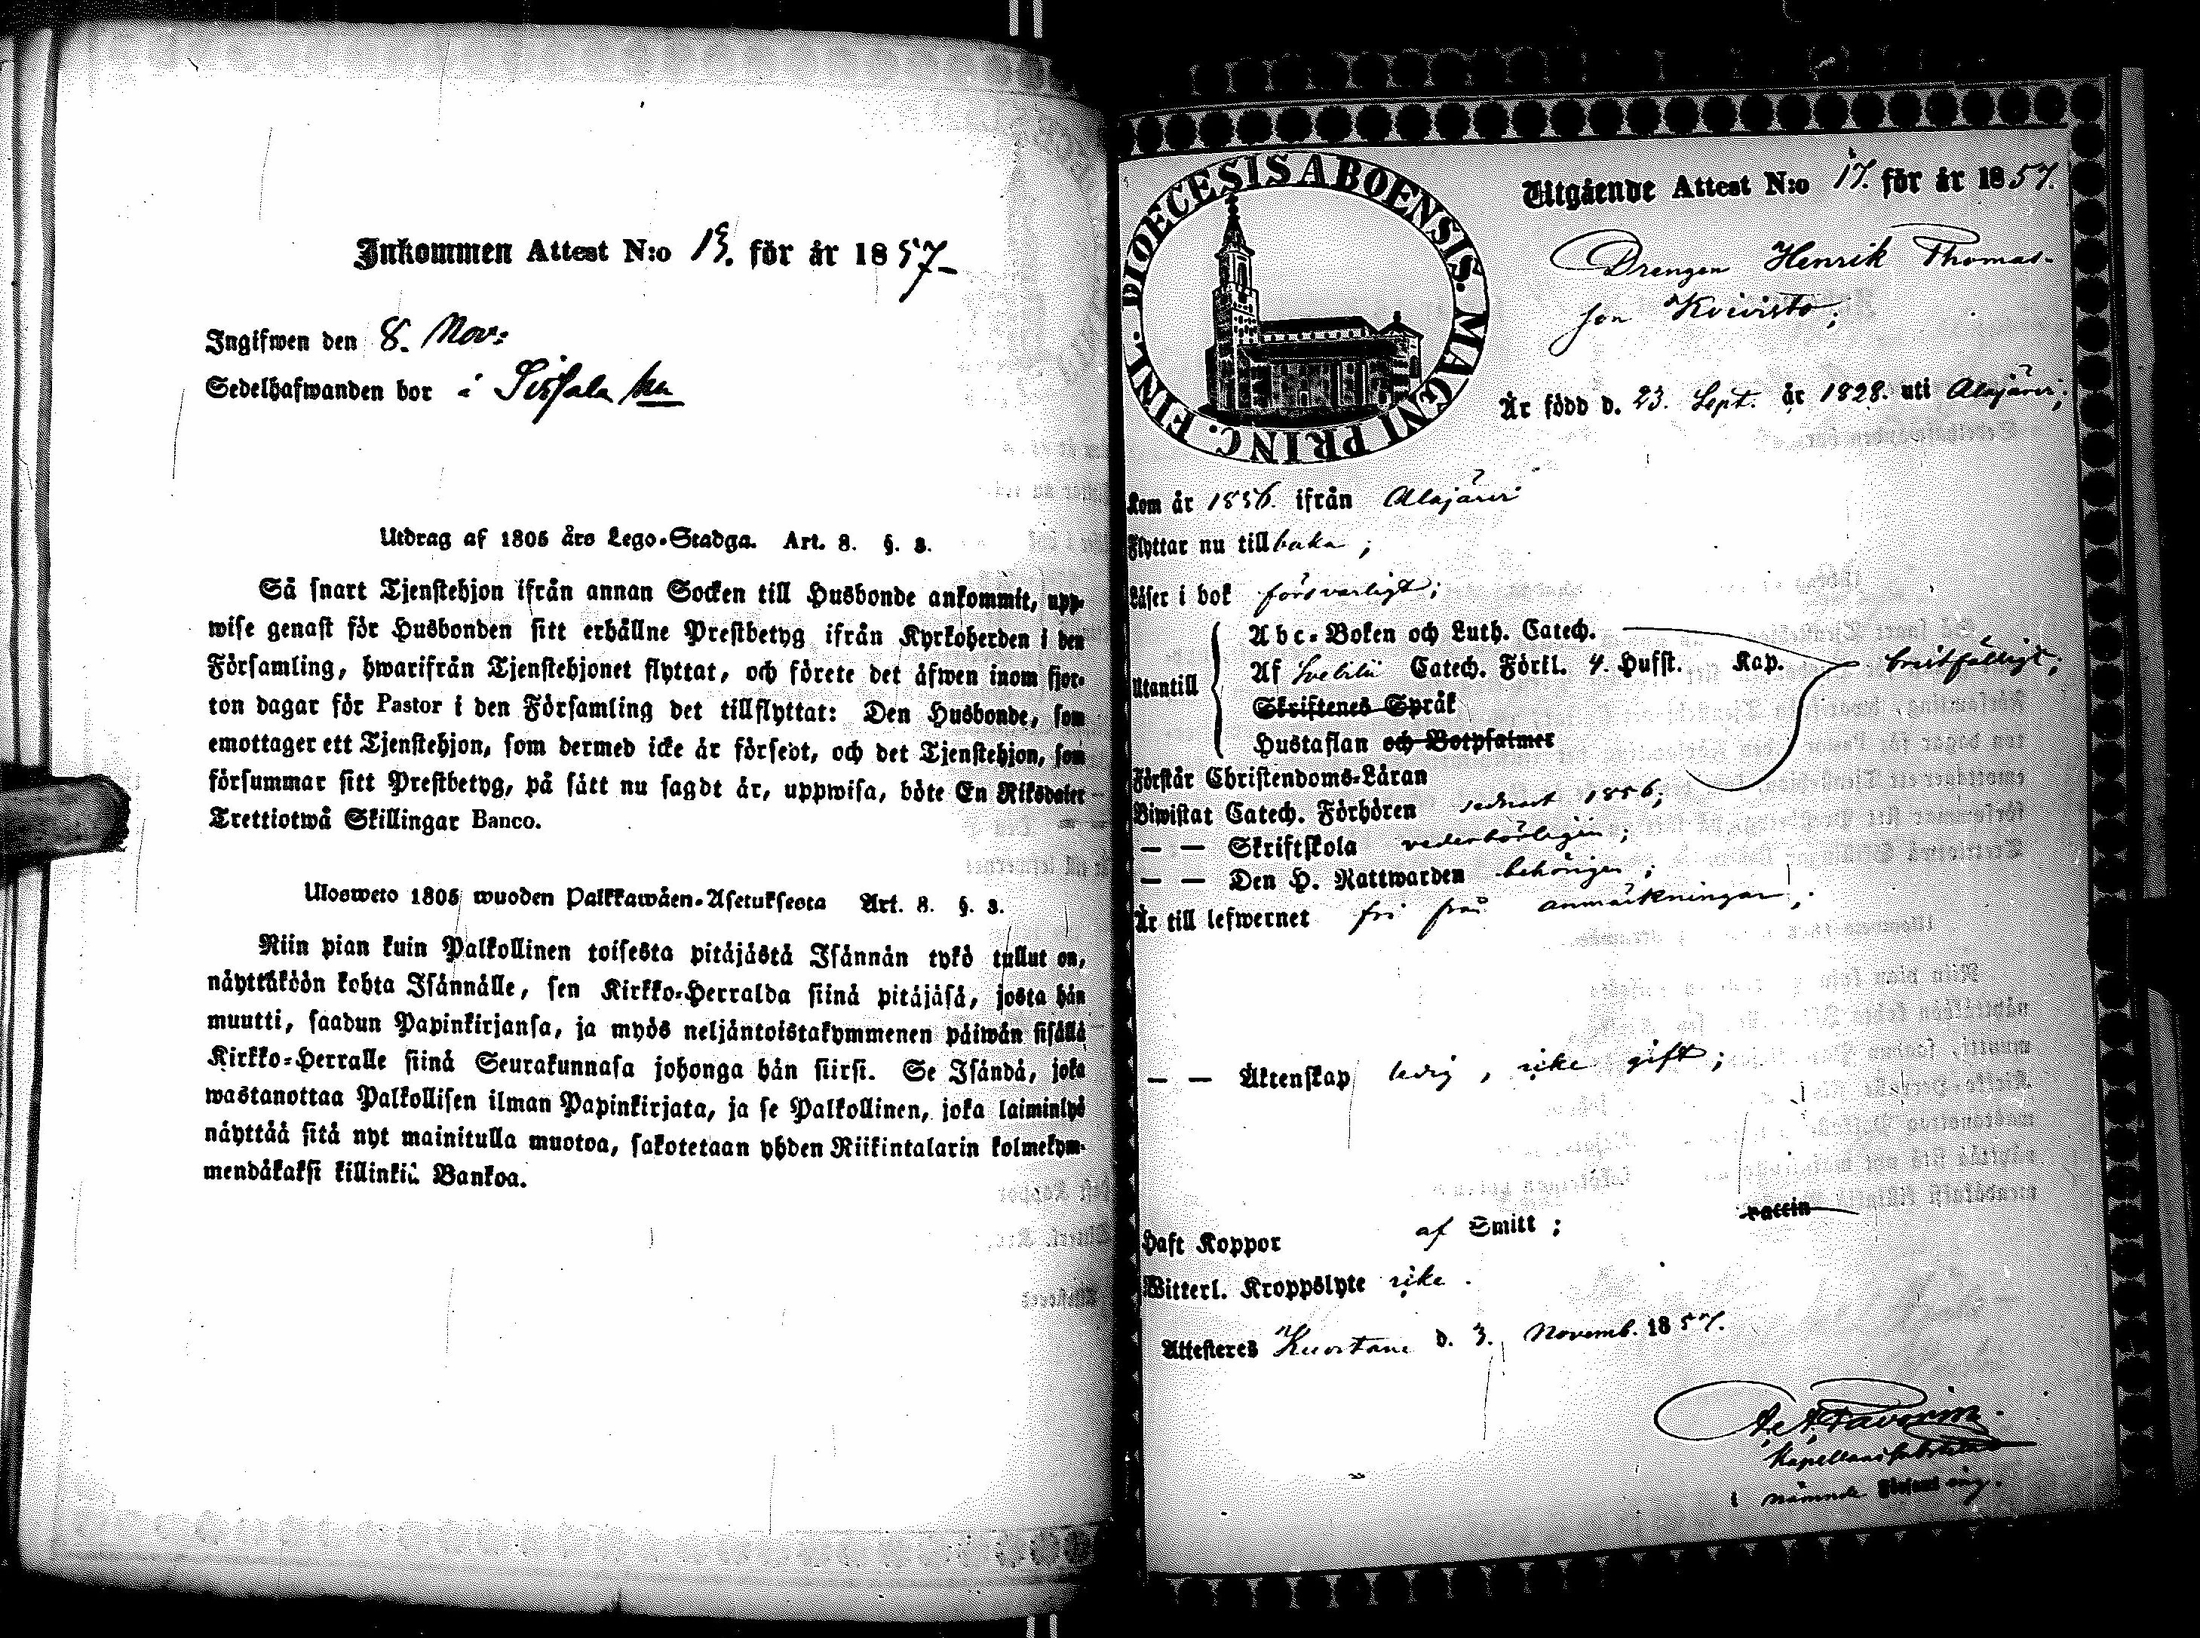 Inkommen Attest N:o 13. för år 1857
Ingifwen den 8. Nov:
Sedelhafwanden bor i
Utdrag af 1805 års Lego-Stadga. Art. 8. §. 3.
Så snart Tjenstehjon ifrån annan Socken till Husbonde ankommit, upp-
wise genast för Husbonden sitt erhållne Prestbetyg ifrån Kyrkoherden i den
Församling, hwarifrån Tjenstehjonet flyttat, och förete det äfwen inom fjor-
ton dagar för Pastor i den Församling det tillflyttat: Den Husbonde, som
emottager ett Tjenstehjon, som dermed icke är försedt, och det Tjenstehjon, som
försummar sitt Prestbetyg, på sätt nu sagdt är, uppwisa, böte En Riksdaler
Trettiotwå Skillingar Banco.
Ulosweto 1805 wuoden Palkkawäen-Asetuksesta Art. 8. §. 3.
Niin pian kuin Palkollinen toisesta pitäjästä Isännän tykö tullut on,
näyttäköön kohta Isännälle, sen Kirkko-Herralda siinä pitäjäsä, josta hän
muutti, saadun Papinkirjansa, ja myös neljäntoistakymmenen päiwän sisällä
Kirkko-Herralle siinä Seurakunnasa johonga hän siirsi. Se Isändä, joka
wastanottaa Palkollisen ilman Papinkirjata, ja se Palkollinen, joka laiminlyö
näyttää sitä nyt mainitulla muotoa, sakotetaan yhden Riikintalarin kolmekym-
mendäkaksi killinkiä Bankoa.
DIOECESIS ABOENSIS. MAGNI PRINC. FINL.
Utgående Attest N:o 17. för år 1857.
Drengen Henrik Thomas-
son Kvivisto;
Är född d. 23. Sept. år 1828. uti Alajärvi;
Kom år 1856. ifrån Alajärvi
Flyttar nu tillbaka;
Läser i bok försvarligt;
Utantill
Abc-Boken och Luth. Catech.
Af Svebilii Catech. Förkl. 4. Hufst. Kap.
Skriftenes Språk
Hustaflan och Botpsalmer
Förstår Christendoms-Läran
Biwistat Catech. Förhören sednast 1856;
— — Skriftskola vederbörligen;
— — Den H. Nattwarden behörigen;
Är till lefwernet fri från anmärkningar;
— — Äktenskap ledig, icke gift;
Haft Koppor af Smitt; vaccin
Witterl. Kroppslyte icke.
Attesteres Kuortane d. 3. Novemb. 1857.
i nämnde